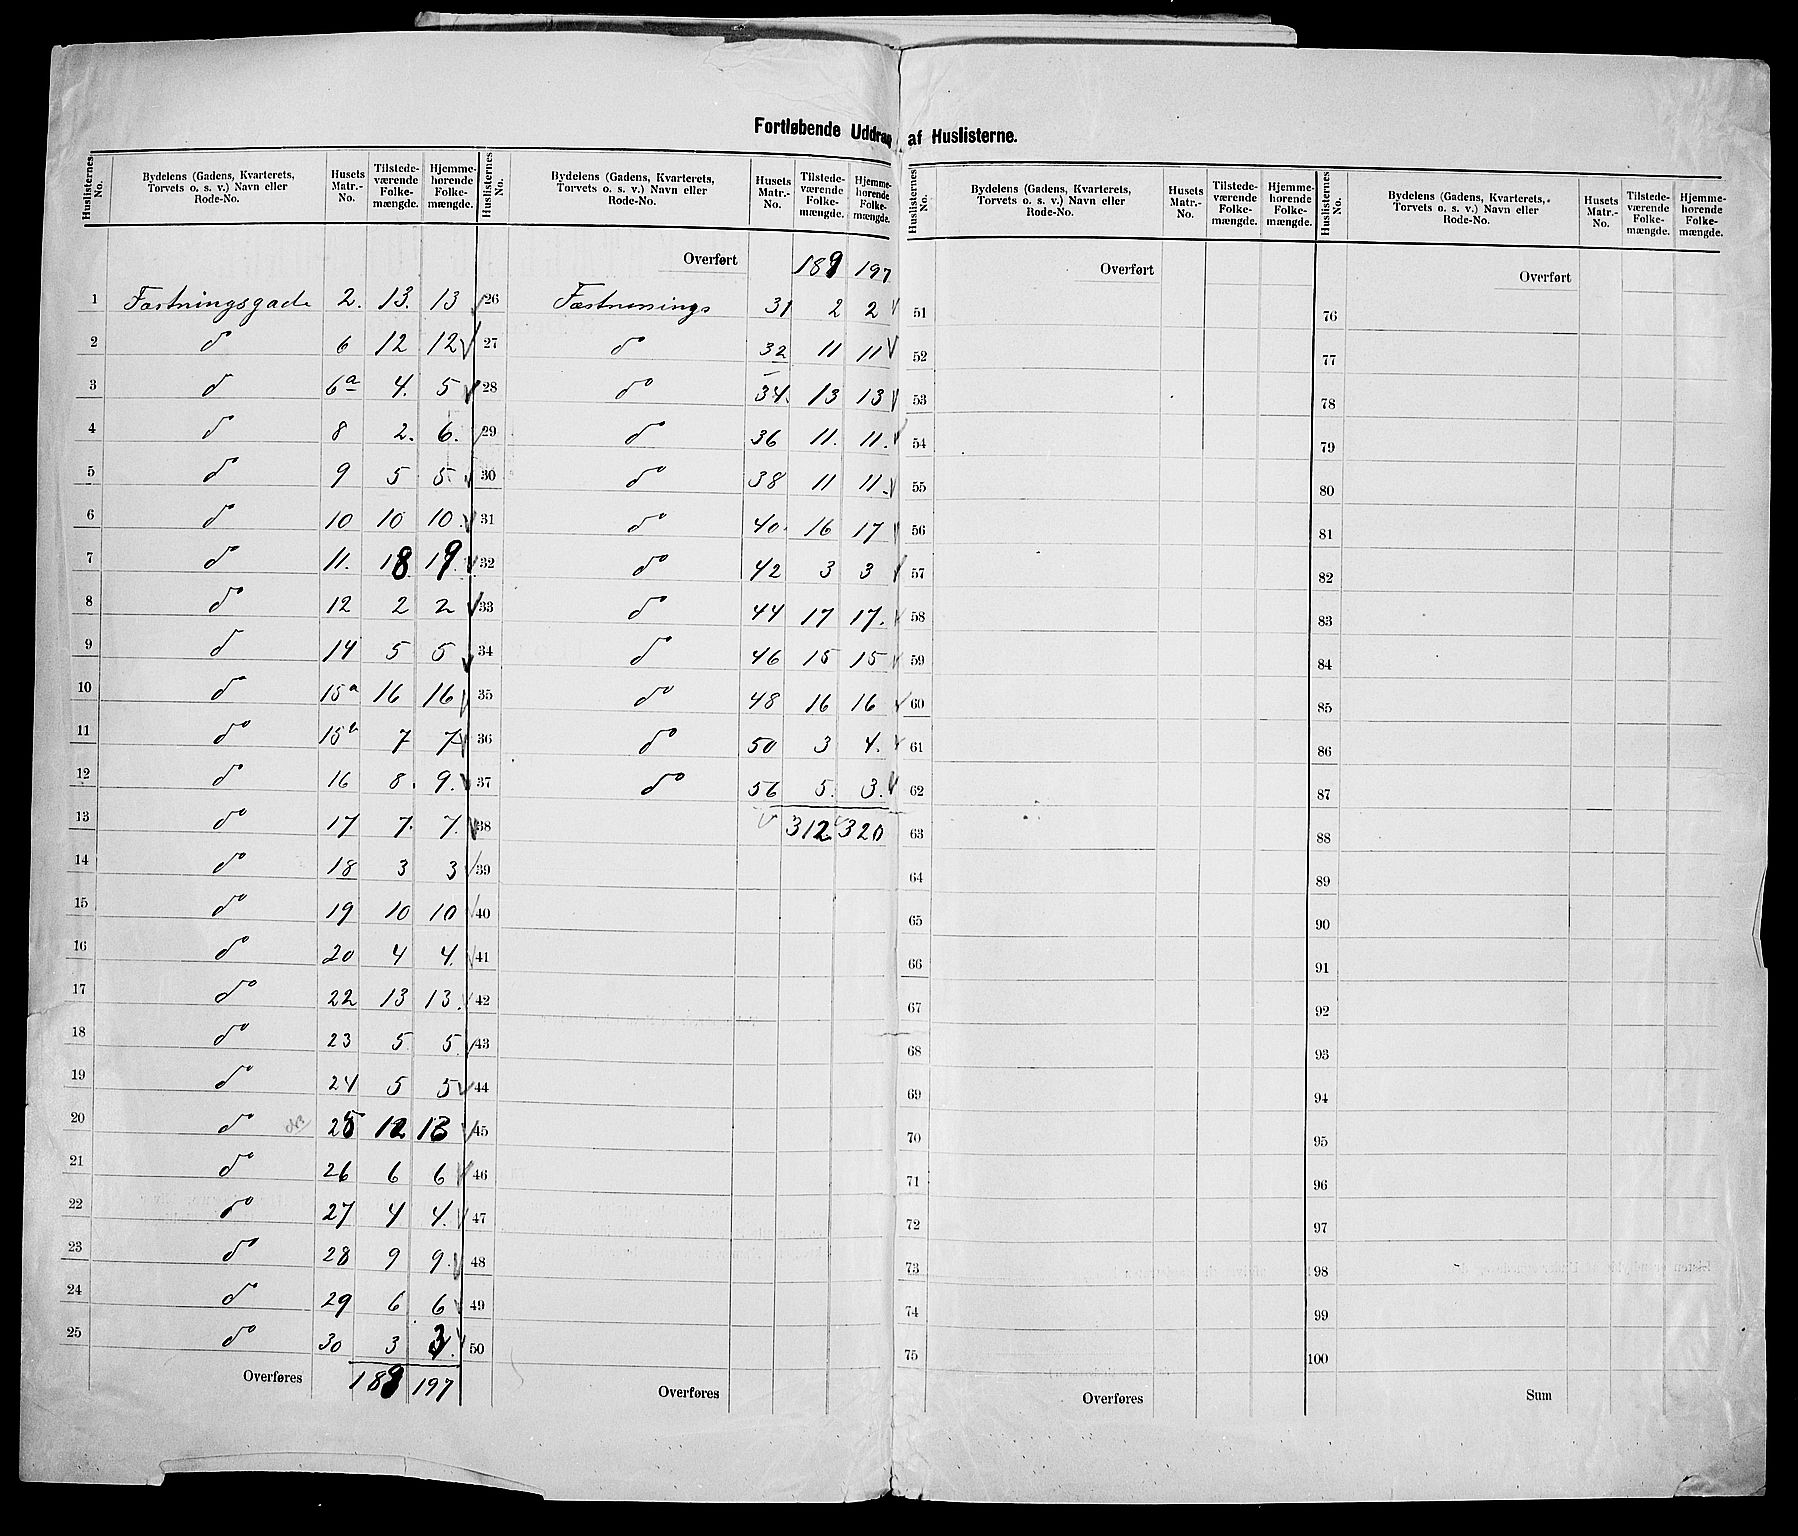 Fortløbende Uddrag af Huslisterne.
Huslisternes No. | Bydelens (Gadens, Kvarterets, Torvets o. s. v.) Navn eller Rode-No. | Husets Matr.-No. | Tilstedeværende Folkemængde. | Hjemmehørende Folkemængde.
1 Fæstningsgade 2. 13. 13
2 do 6 12 12
3 do 6a 4. 5
4 do 8 2. 6.
5 do 9 5 5.
6 do 10 10 10.
7 do 11. 18 19.
8 do 12 2 2
9 do 14 5 5
10 do 15a 16 16
11 do 15b 7 7
12 do 16 8. 9.
13 do 17 7. 7.
14 do 18 3 3
15 do 19 10 10
16 do 20 4 4.
17 do 22 13 13.
18 do 23 5 5.
19 do 24 5 5
20 do 25 12 13
21 do 26 6 6
22 do 27 4 4.
23 do 28 9 9.
24 do 29 6 6
25 do 30 3 3.
Overføres 189 197
Huslisternes No. | Bydelens (Gadens, Kvarterets, Torvets o. s. v.) Navn eller Rode-No. | Husets Matr.-No. | Tilstedeværende Folkemængde. | Hjemmehørende Folkemængde.
Overført 189 197
26 Fæstnenings 31 2 2
27 do 32 11 11
28 do 34. 13 13
29 do 36 11. 11.
30 do 38 11 11.
31 do 40. 16 17
32 do 42 3 3
33 do 44 17 17.
34 do 46 15 15
35 do 48 16 16
36 do 50 3 4.
37 do 56 5. 3.
38 312 320
39
40
41
42
43
44
45
46
47
48
49
50
Overføres
Huslisternes No. | Bydelens (Gadens, Kvarterets, Torvets o. s. v.) Navn eller Rode-No. | Husets Matr.-No. | Tilstedeværende Folkemængde. | Hjemmehørende Folkemængde.
Overført
51
52
53
54
55
56
57
58
59
60
61
62
63
64
65
66
67
68
69
70
71
72
73
74
75
Overføres
Huslisternes No. | Bydelens (Gadens, Kvarterets, Torvets o. s. v.) Navn eller Rode-No. | Husets Matr.-No. | Tilstedeværende Folkemængde. | Hjemmehørende Folkemængde.
Overført
76
77
78
79
80
81
82
83
84
85
86
87
88
89
90
91
92
93
94
95
96
97
98
99
100
Sum